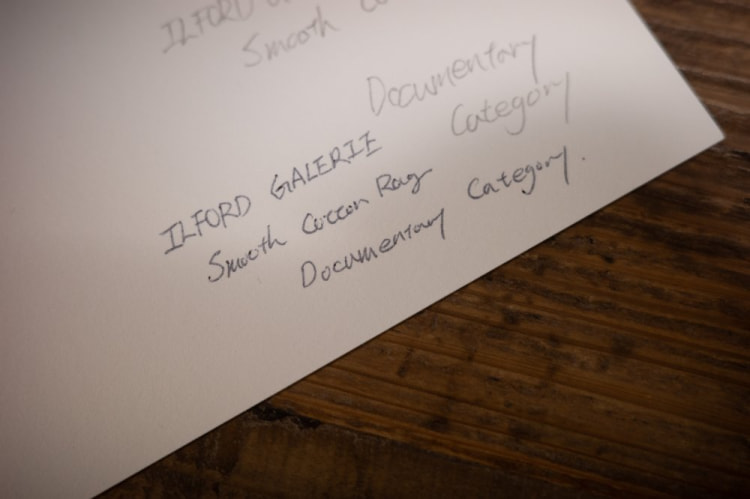 ILFORD
Smooth Co
Documentary
Category
ILFORD GALERIE
Smooth Cotton Rag
Documentary Category.